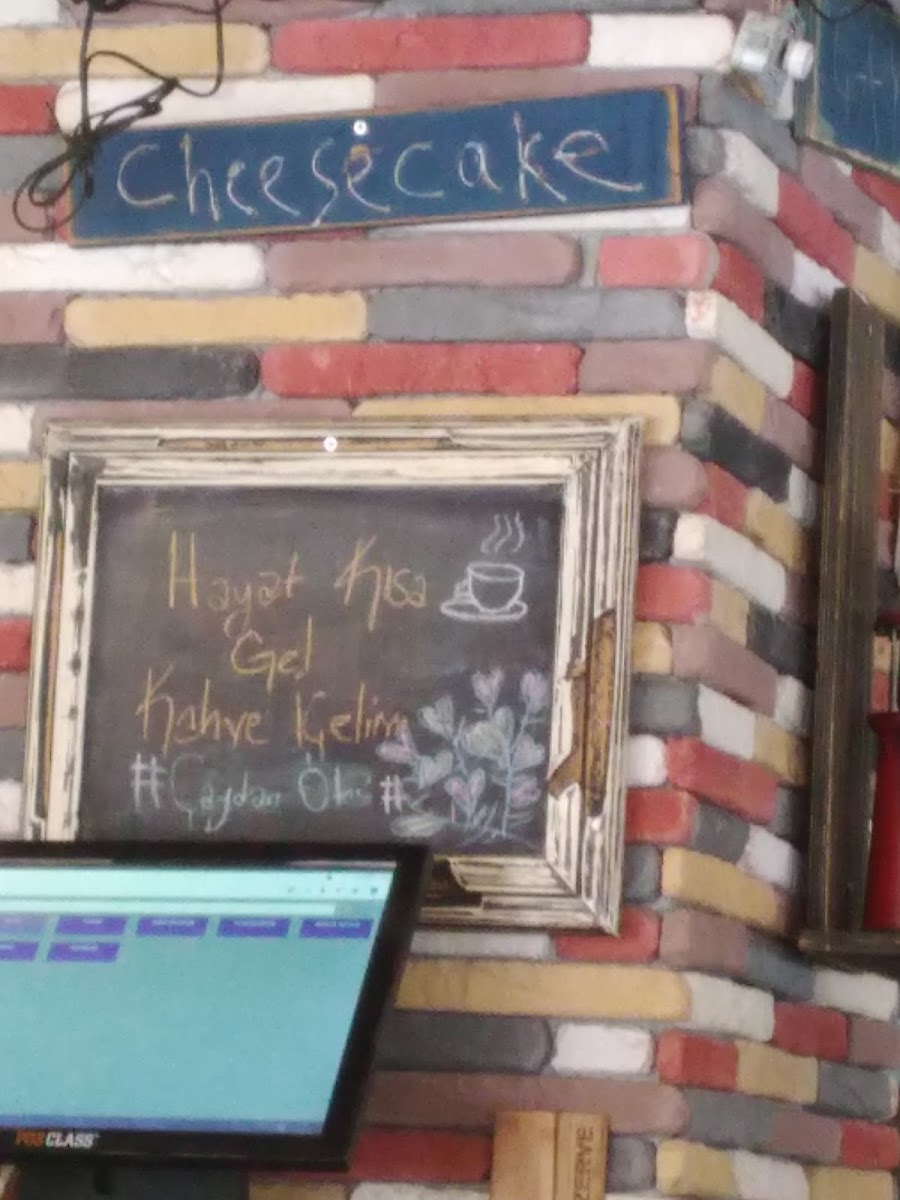 Cheesecake
Hayat Kısa
Gel
Kahve İçelim
#Çaydan Öte #
POSCLASS
ZERVE